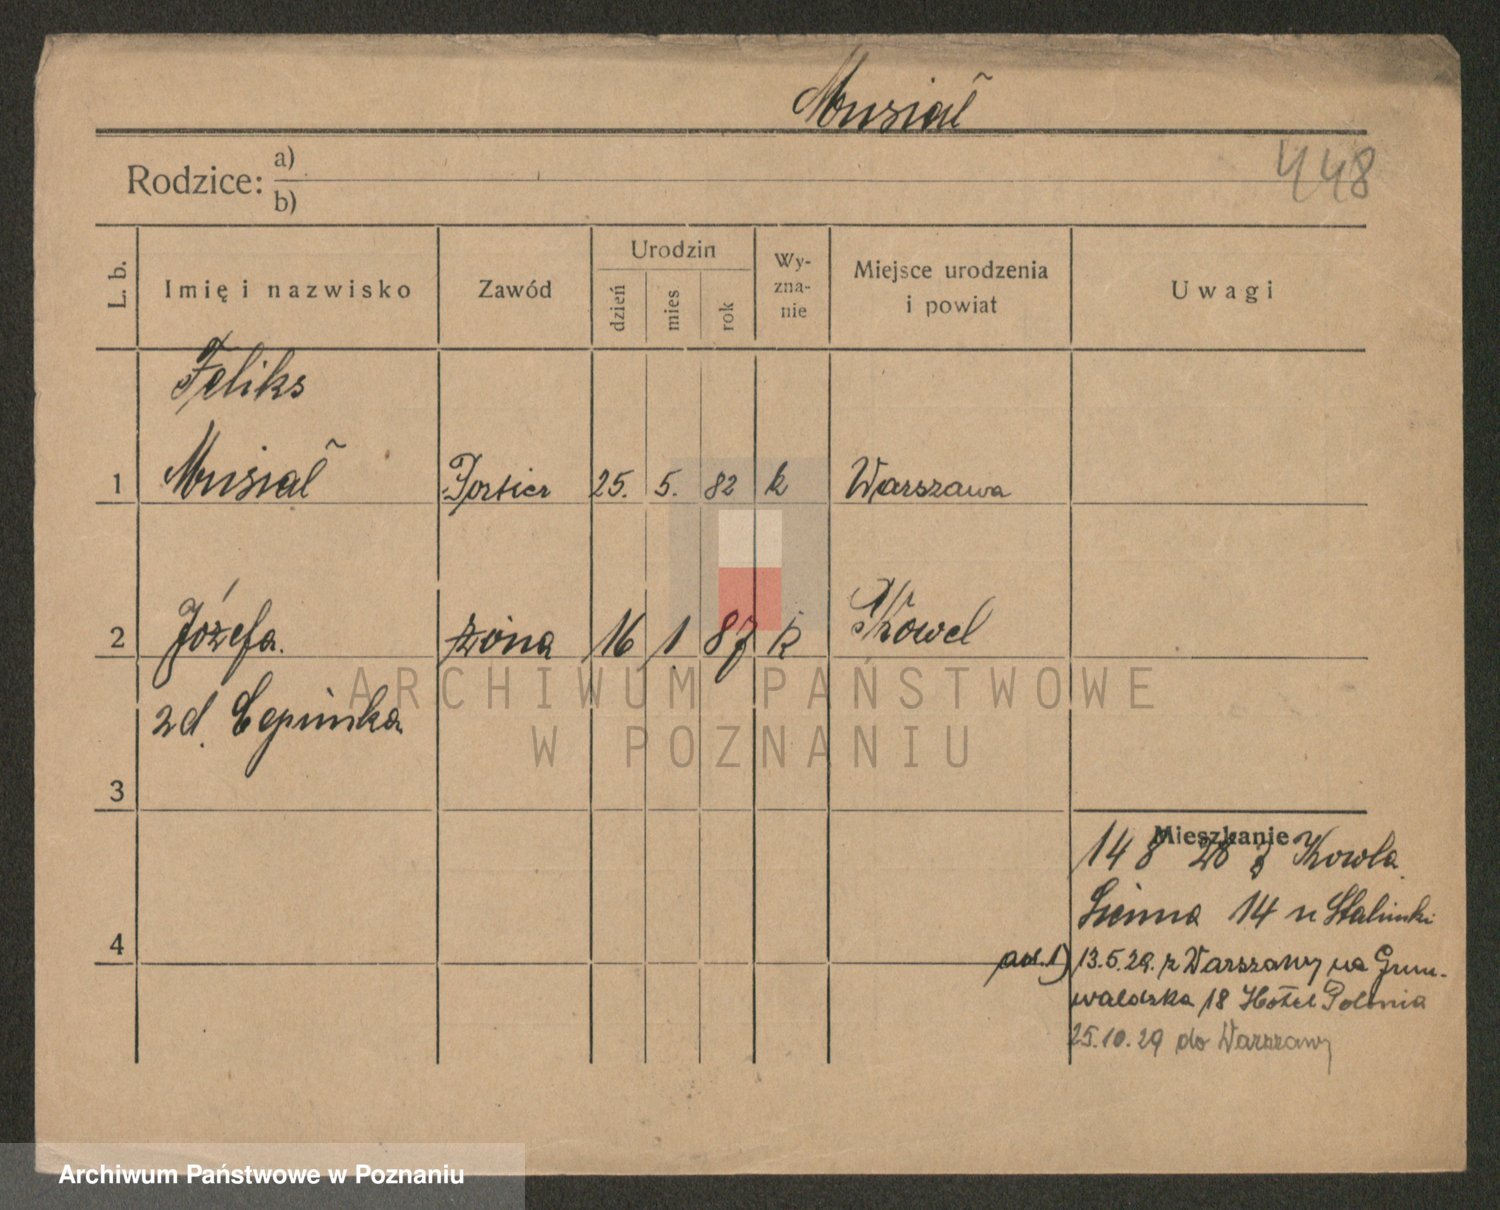 Musiał
448
Rodzice: a)
b)
L. b.
Imię i nazwisko
Zawód
Urodzin
dzień
mies
rok
Wy-
zna-
nie
Miejsce urodzenia
i powiat
Uwagi
Feliks
1 Musiał Portier 25. 5. 82 k Warszawa
2 Józefa. żona 16 1 87 k Kowel
zd.
3
Mieszkanie
14 8 28 z Kowla
Sienna 14 u
4
ad. 1) 13.5.29. z Warszawy na Grun-
waldzka 18 Hotel Polonia
25.10.29 do Warszawy
ARCHIWUM PAŃSTWOWE
W POZNANIU
Archiwum Państwowe w Poznaniu